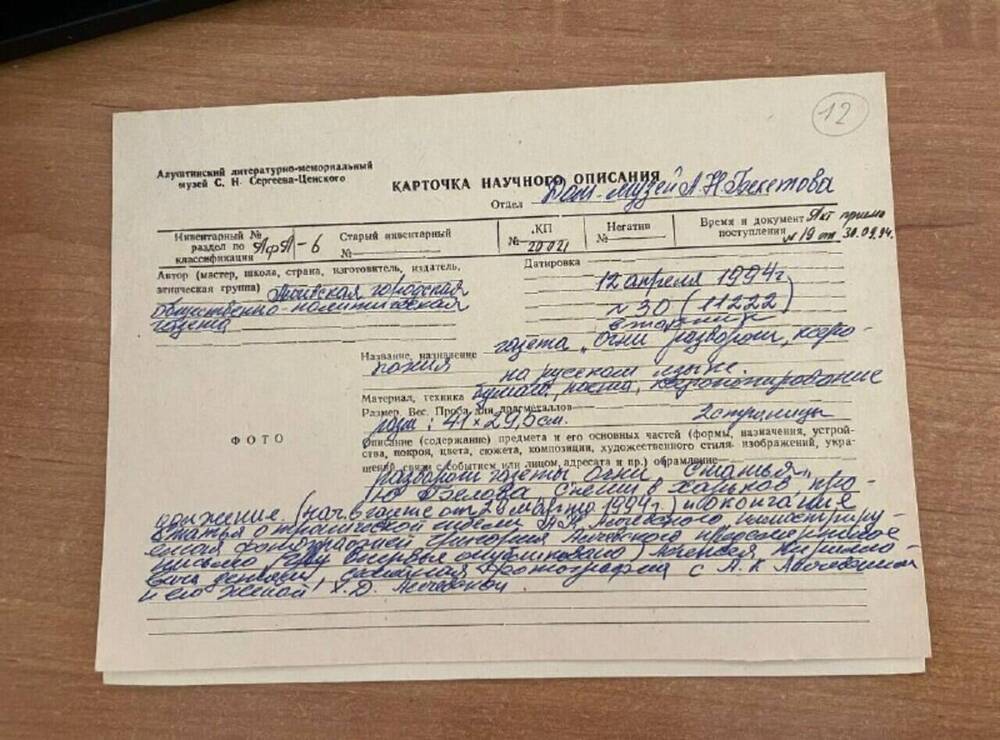 12
Алуштинский литературно-мемориальный
музей С. Н. Сергеева-Ценского
КАРТОЧКА НАУЧНОГО ОПИСАНИЯ
Отдел Дом-музей А Н Бекетова
Инвентарный №
раздел по
классификации АфА-6
Старый инвентарный
№
КП
№ 20021
Негатив
№
Время и документ Акт приема
поступления № 19 от 30.09.94.
Автор (мастер, школа, страна, изготовитель, издатель,
этническая группа) Алчевская городская
общественно-политическая
газета
Датировка
12 апреля 1994г
№ 30 (11222)
вторник
Название, назначение газета „Огни разворот, ксеро-
копия на русском языке.
Материал, техника бумага, паста, ксерокопирование
Размер. Вес. Проба для драгметаллов
разм: 41×29,5см. 2 страницы
ФОТО
Описание (содержание) предмета и его основных частей (формы, назначения, устрой-
ства, покроя, цвета, сюжета, композиции, художественного стиля изображений, укра-
шений, связи с событием или лицом, адресата и пр.) обрамление
разворот газеты „Огни Статья
Ю Белова „ в Харьков про-
должение. (начало от 29 марта 1994г.) и окончание
Статья о трагической гибели А.К Алчевского иллюстриру-
емая фотографией Григория Алчевского предсмертное
письмо впервые опубликовано) Алексея Кирилло-
вича фотография с А. К Алчевским
и его женой Х. Д. Алчевской